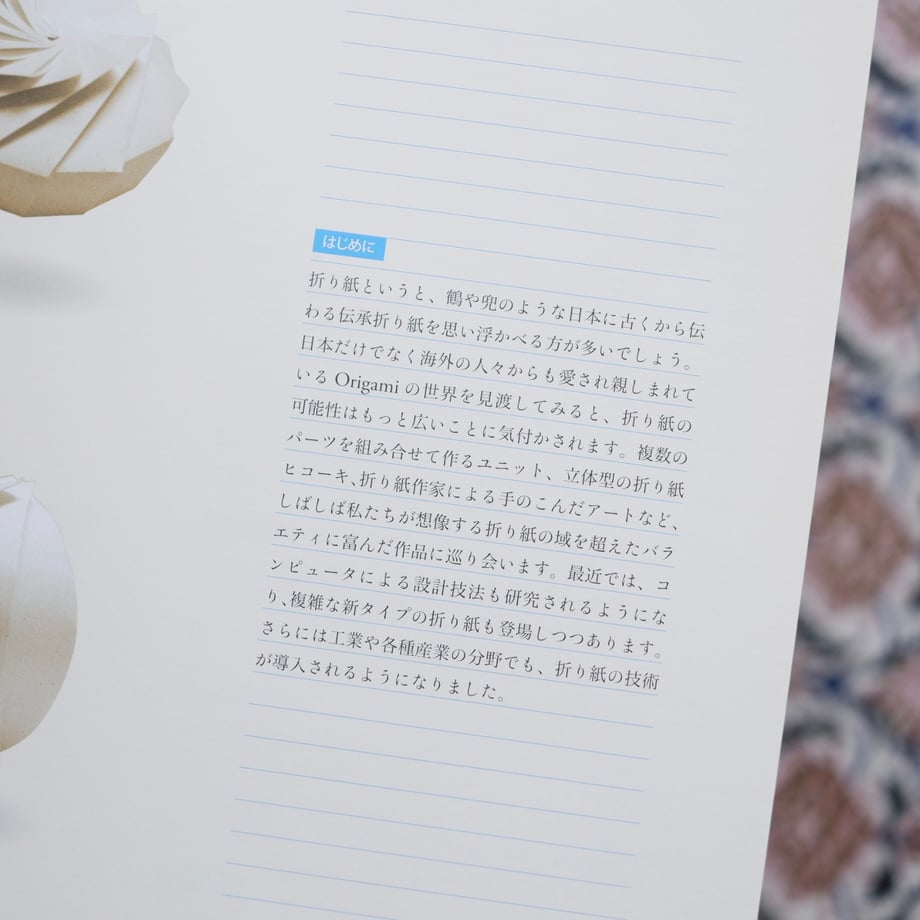 はじめに
折り紙というと、鶴や兜のような日本に古くから伝
わる伝承折り紙を思い浮かべる方が多いでしょう。
日本だけでなく海外の人々からも愛され親しまれて
いる Origami の世界を見渡してみると、折り紙の
可能性はもっと広いことに気付かされます。複数の
パーツを組み合せて作るユニット、立体型の折り紙
ヒコーキ、折り紙作家による手のこんだアートなど、
しばしば私たちが想像する折り紙の域を超えたバラ
エティに富んだ作品に巡り会います。最近では、コ
ンピュータによる設計技法も研究されるようにな
り、複雑な新タイプの折り紙も登場しつつあります。
さらには工業や各種産業の分野でも、折り紙の技術
が導入されるようになりました。